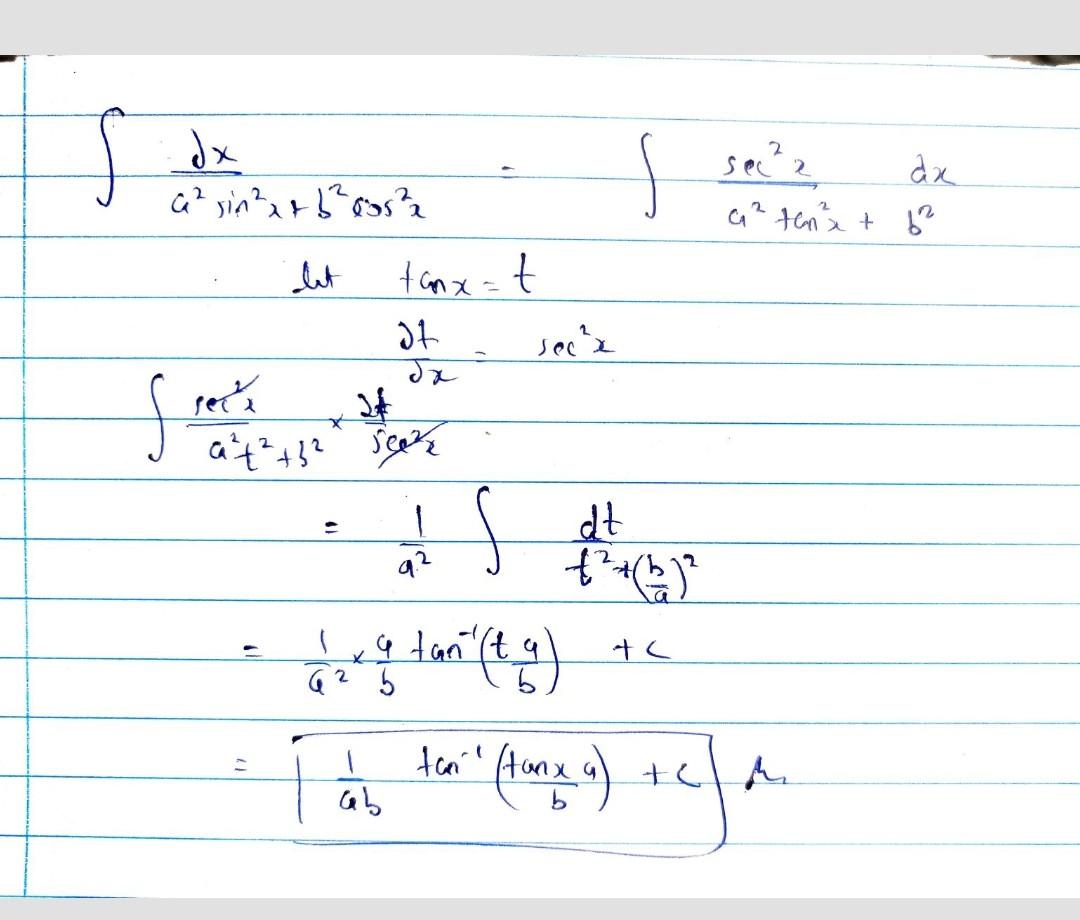 ∫ dx / (a² sin²x + b² cos²x) = ∫ sec²x / (a² tan²x + b²) dx
let tanx = t
dt/dx = sec²x
∫ sec²x / (a²t² + b²) × dt / sec²x
= 1/a² ∫ dt / (t² + (b/a)²)
= 1/a² × a/b tan⁻¹(t a/b) + c
= 1/ab tan⁻¹(tanx a/b) + c